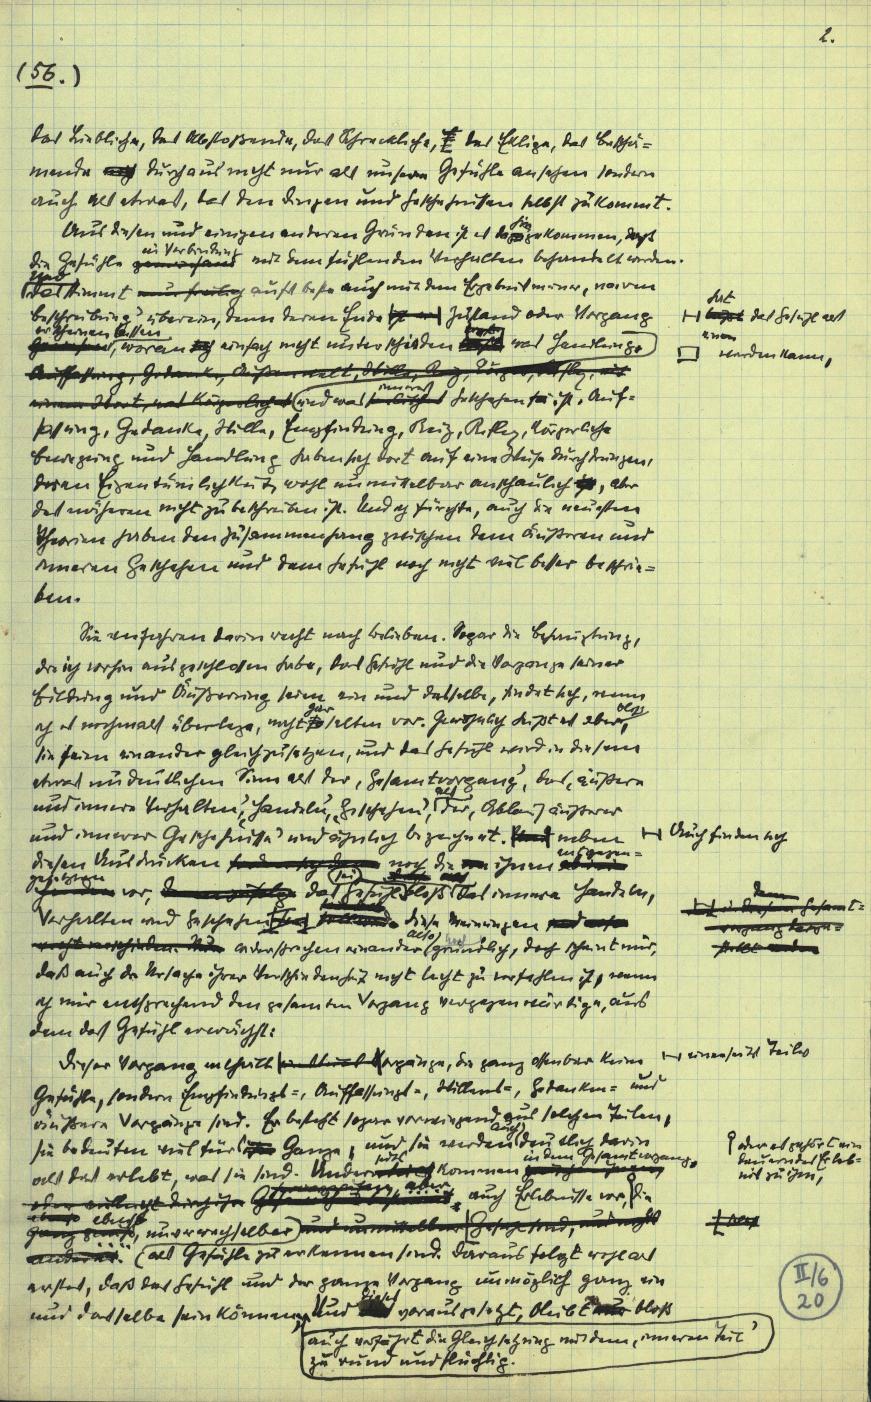 2.
(56.)
das Liebliche, das Abstoßende, das Schreckliche, das Eklige, das Beschä=
mende durchaus nicht nur als unsere Gefühle ansehen sondern
auch als etwas, das den Dingen und Geschehnissen selbst zukommt.
Aus diesen und einigen anderen Gründen ist es dazu gekommen, daß
die Gefühle in Verbindung mit dem fühlenden Verhalten behandelt werden.
Und das stimmt aufs beste auch mit dem Ergebnis meiner, naiven
Beschreibung' überein, denn deren Ende Zustand oder Vorgang
hat das Gefühl als
einen
erscheinen lassen, woran einfach nicht unterschieden was Handlung,
werden kann,
und was inneres Geschehen ist. Auf-
fassung, Gedanke, Wille, Empfindung, Reiz, Reflex, körperliche
Bewegung und Handlung haben sich dort auf eine Weise durchdrungen,
deren Eigentümlichkeit wohl unmittelbar anschaulich, aber
des näheren nicht zu beschreiben ist. Und ich fürchte, auch die neuesten
Theorien haben den Zusammenhang zwischen dem äußeren und
inneren Geschehen und dem Gefühl noch nicht viel besser beschrie=
ben.
Sie verfahren darin recht nach Belieben. Sogar die Behauptung,
die ich vorhin ausgeschlossen habe, das Gefühl und die Vorgänge seiner
Bildung und Äußerung seien ein und dasselbe, findet sich, wenn
ich es nochmals überlege, nicht gar selten vor. Gewöhnlich heißt es aber bloß,
sie seien einander gleichzusetzen, und das Gefühl wird in diesem
etwas undeutlichen Sinn als der ,Gesamtvorgang', das ,äußere
und innere Verhalten', Handeln, Geschehen', als der ,Ablauf äußerer
und innerer Geschehnisse' und ähnlich bezeichnet. neben
Auch finden sich
diesen Ausdrücken noch die ihnen entgegen=
gesetzten vor, das Gefühl sei bloß das innere Handeln,
Verhalten und Geschehen diese Meinungen
widersprechen einander also gründlich, doch scheint mir,
daß auch die Ursache ihrer Verschiedenheit nicht leicht zu verfehlen ist, wenn
ich mir entsprechend den gesamten Vorgang vergegenwärtige, aus
dem das Gefühl erwächst:
Dieser Vorgang enthält Vorgänge, die ganz offenbar keine
einerseits Teile
Gefühle, sondern Empfindungs-, Auffassungs-, Willens-, Gedanken- und
äußere Vorgänge sind. Er besteht sogar vorwiegend aus solchen Teilen,
sie bedeuten viel fürs Ganze, und sie werden auch deutlich darin
oder es gehört ein
dauerndes Erleb-
nis zu ihm,
als das erlebt, was sie sind. kommen in dem Gesamtvorgang,
auch Erlebnisse vor, die
ebenso unverwechselbar
als Gefühle zu erkennen sind. Daraus folgt wohl als
erstes, daß das Gefühl und der ganze Vorgang unmöglich ganz ein
und dasselbe sein können, Und dies vorausgesetzt, bleibt bloß
auch verfährt die Gleichsetzung mit dem ,inneren Teil'
zu rund und flüchtig.
II/6
20